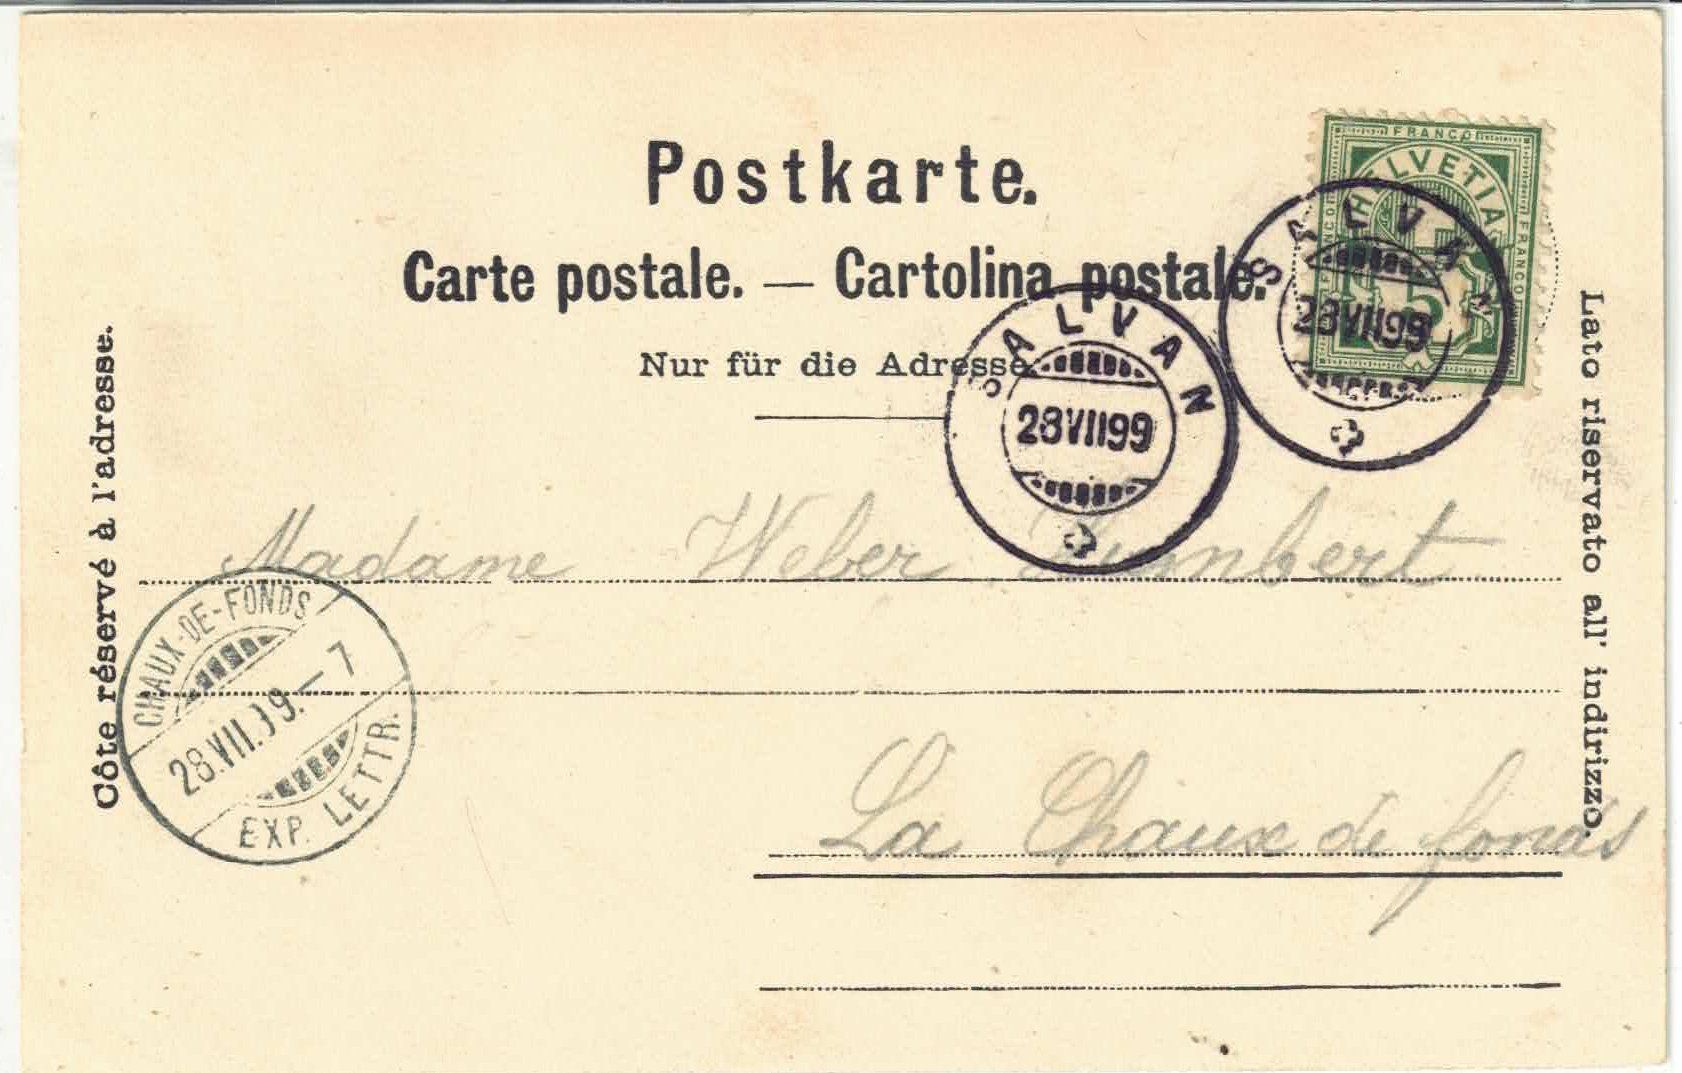 Postkarte.
Carte postale. — Cartolina postale.
Nur für die Adresse
Côte réservé à l'adresse.
Lato riservato all' indirizzo.
FRANCO
HELVETIA
FRANCO
FRANCO
5
SALVAN
28VII99
SALVAN
28VII99
Madame Weber Humbert
CHAUX-DE-FONDS
28.VII.99.–7
EXP. LETTR.
La Chaux de fonds